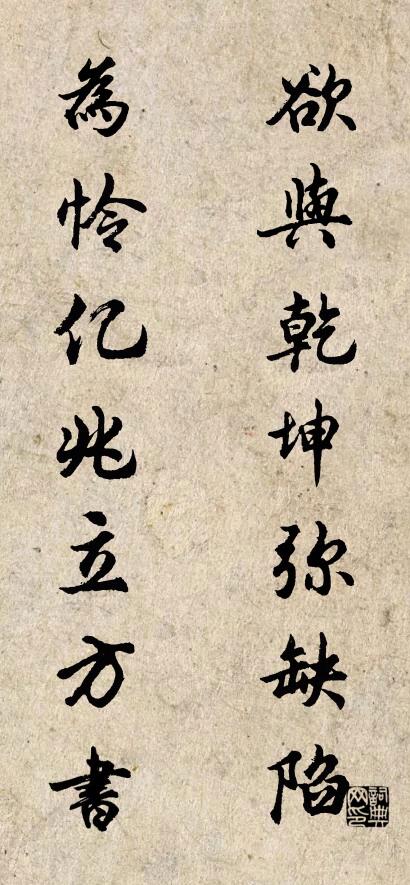 欲與乾坤弥缺陷
為怜亿兆立方書
詞典网印